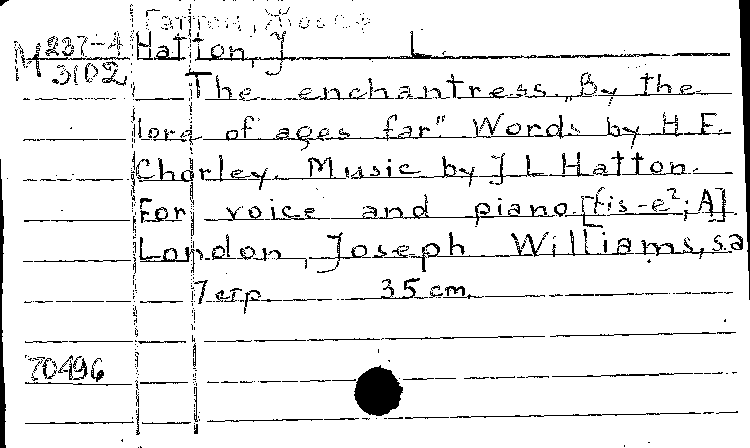 Гаттон, Жозеф
M 237-4 Hatton, J L.
3102 The enchantress. „By the
lore of ages far" Words by H. F.
Chorley. Music by J L Hatton.
For voice and piano [fis-e²; A]
London, Joseph Williams, sa
7 стр. 35 cm.
70496